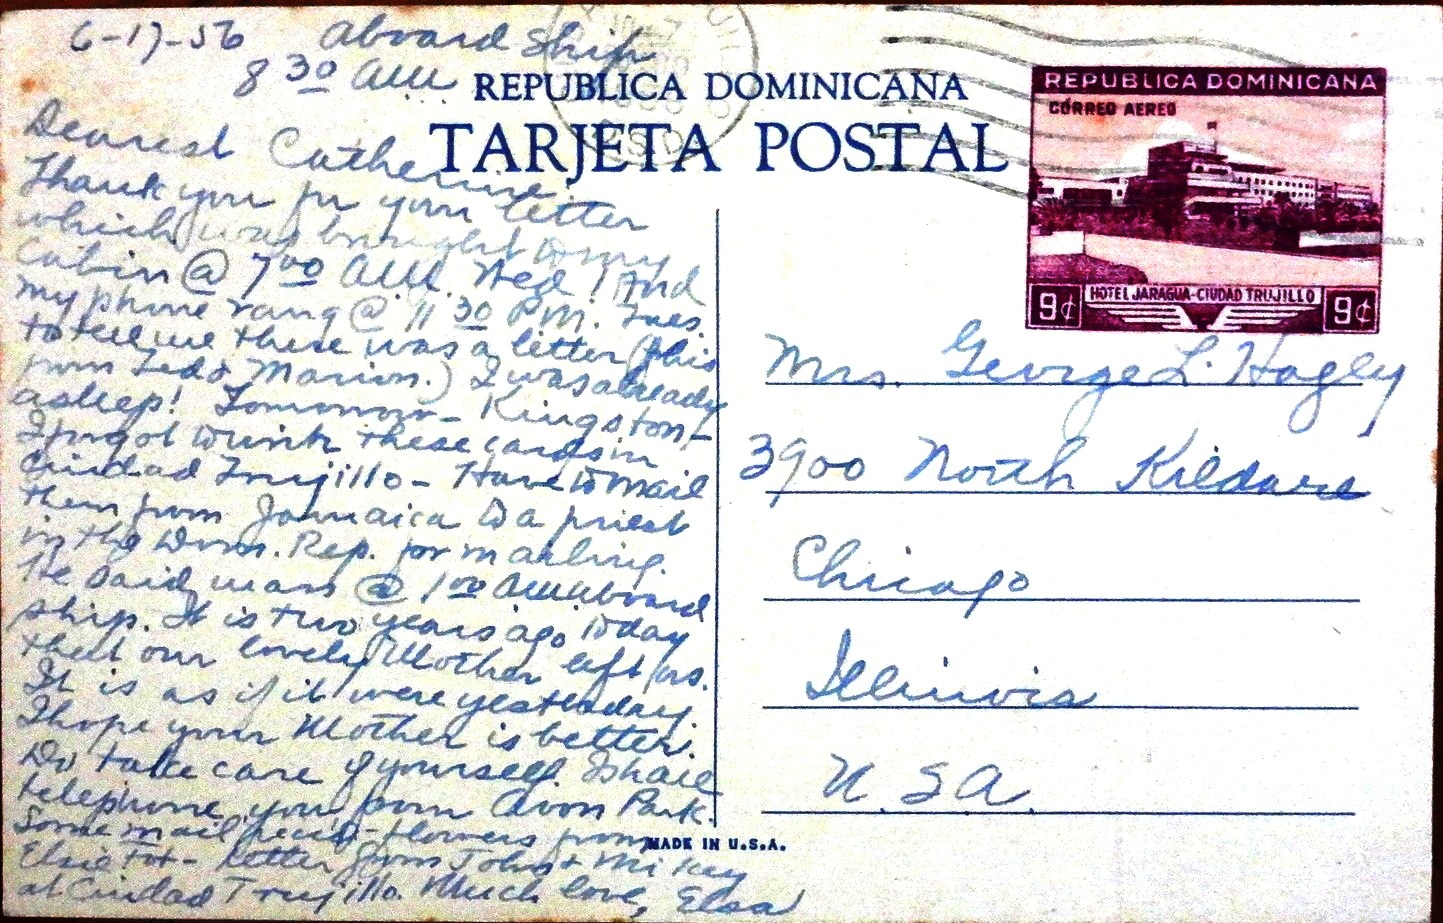 6-17-56 Aboard Ship
8 30 AM
REPUBLICA DOMINICANA
TARJETA POSTAL
Dearest Catherine,
Thank you for your letter
which was brought to my
Cabin @ 7 00 A.M. Wed! And
my phone rang @ 11 30 P.M. Tues.
to tell me there was a letter (this
from Marion.) I was already
asleep! Tomorrow - Kingston -
I forgot to write these cards in
Ciudad Trujillo - Have to mail
them from Jamaica to a priest
in the Dom. Rep. for mailing.
He said mass @ 7 00 AM aboard
ship. It is two years ago today
that our lovely Mother left us.
It is as if it were yesterday.
I hope your Mother is better.
Do take care of yourself. I shall
telephone you from Avon Park.
Some mail rec'd - flowers from
Elsie - letter from John & Mickey
at Ciudad Trujillo. Much love, Elsa
REPUBLICA DOMINICANA
CORREO AEREO
HOTEL JARAGUA-CIUDAD TRUJILLO
9¢ 9¢
Mrs. George L. Hagley
3900 North Kildare
Chicago
Illinois
U.S.A.
MADE IN U.S.A.